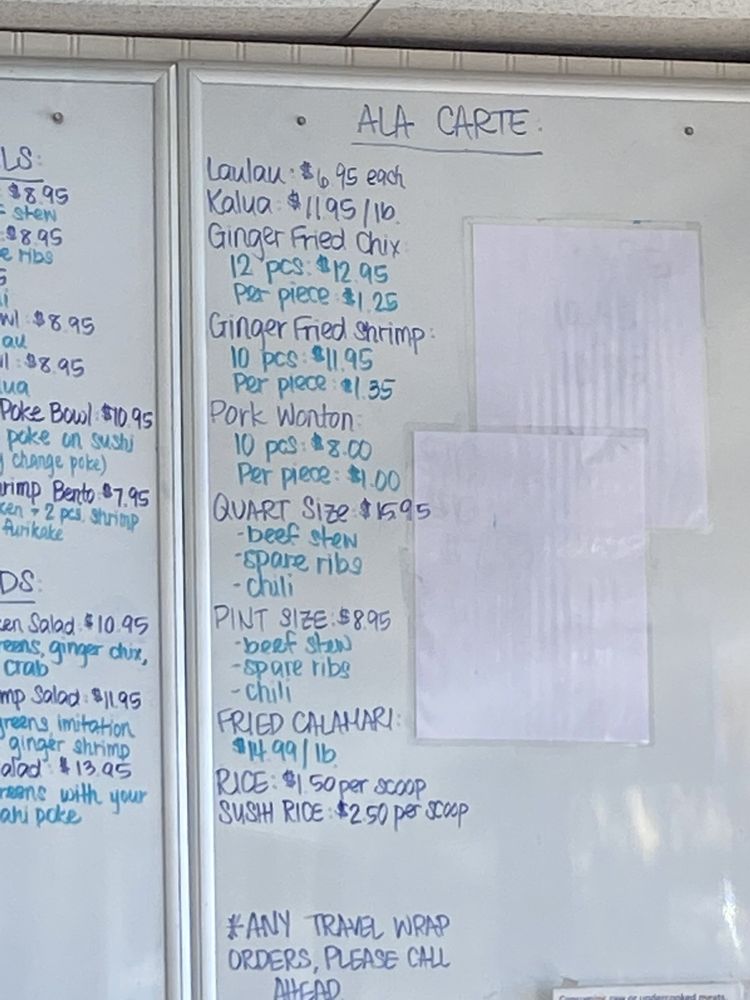 LS:
$8.95
stew
$8.95
e ribs
wl: $8.95
au
l: $8.95
ua
Poke Bowl: $10.95
poke on sushi
change poke)
rimp Bento: $7.95
ken + 2 pcs. shrimp
furikake
DS:
ken Salad: $10.95
reens, ginger chix,
crab
mp Salad: $11.95
greens imitation
ginger shrimp
alad: $13.95
reens with your
ahi poke
ALA CARTE:
Laulau: $6.95 each
Kalua: $11.95/lb.
Ginger Fried Chix:
12 pcs: $12.95
Per piece: $1.25
Ginger Fried Shrimp:
10 pcs: $11.95
Per piece: $1.35
Pork Wonton:
10 pcs: $8.00
Per piece: $1.00
QUART SIZE: $15.95
-beef stew
-spare ribs
-chili
PINT SIZE: $8.95
-beef stew
-spare ribs
-chili
FRIED CALAMARI:
$14.99/lb.
RICE: $1.50 per scoop
SUSHI RICE: $2.50 per scoop
*ANY TRAVEL WRAP
ORDERS, PLEASE CALL
AHEAD
Consuming raw or undercooked meats,